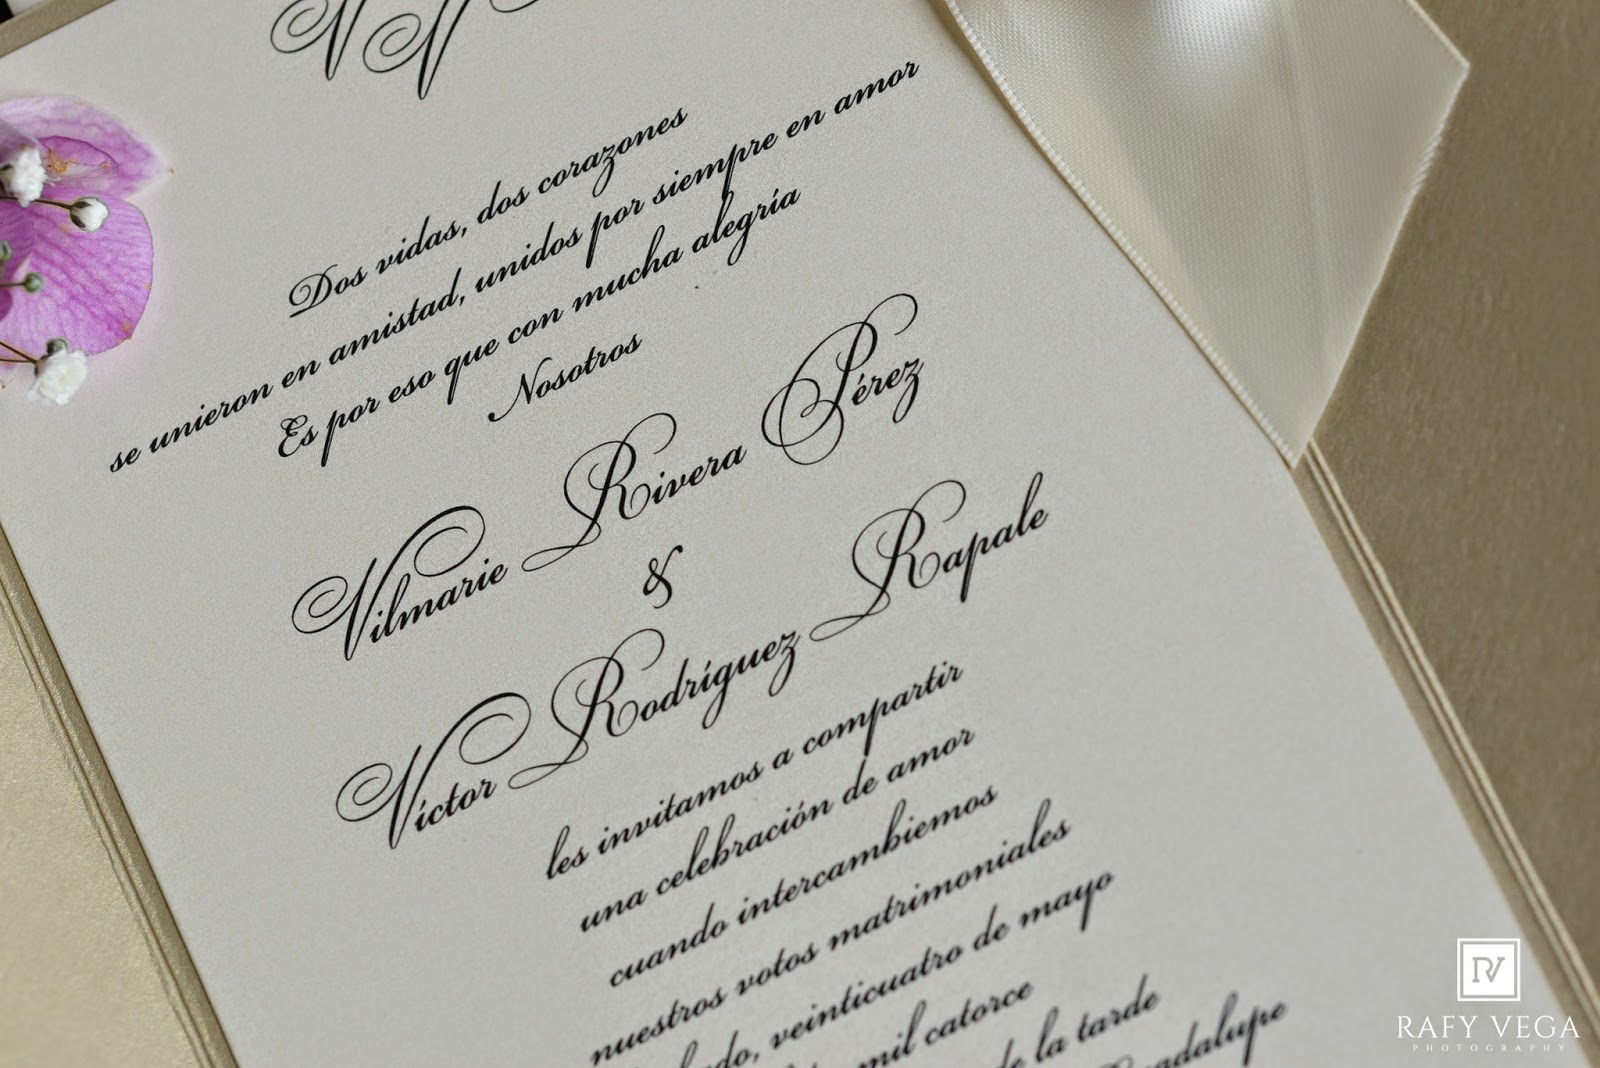 V V
Dos vidas, dos corazones
se unieron en amistad, unidos por siempre en amor
Es por eso que con mucha alegría
Nosotros
Vilmarie Rivera Pérez
&
Víctor Rodríguez Rapale
les invitamos a compartir
una celebración de amor
cuando intercambiemos
nuestros votos matrimoniales
veinticuatro de mayo
mil catorce
de la tarde
Guadalupe
RV
RAFY VEGA
PHOTOGRAPHY